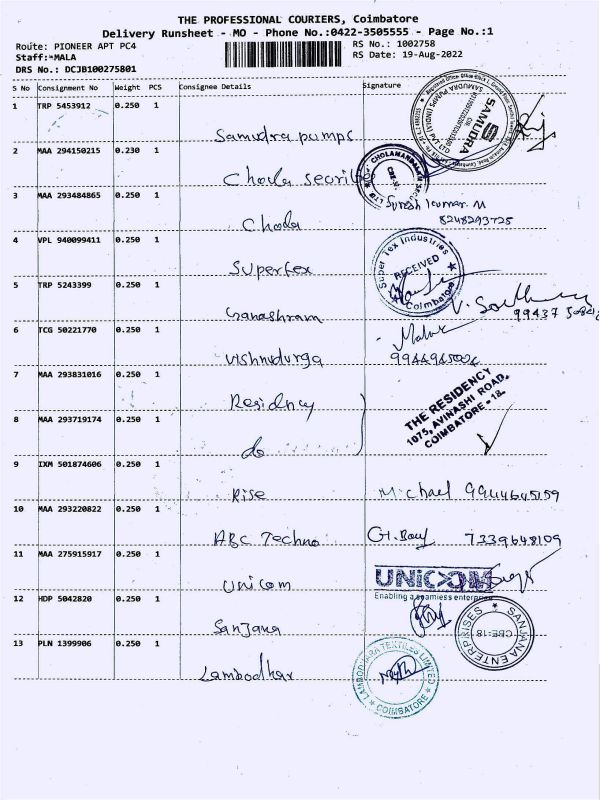 THE PROFESSIONAL COURIERS, Coimbatore
Delivery Runsheet - MO - Phone No.:0422-3505555 - Page No.:1
Route: PIONEER APT PC4
RS No.: 1002758
Staff:-MALA
RS Date: 19-Aug-2022
DRS No.: DCJB100275801
S No Consignment No Weight PCS Consignee Details Signature
1 TRP 5453912 0.250 1 Samudra pumps
SAMUDRA
2 MAA 294150215 0.230 1 Chola securit
CHOLAMANDALAM
3 MAA 293484865 0.250 1 Chola Suresh kumar. M
8248293725
4 VPL 940099411 0.250 1 Supertex
Super Tex Industries
RECEIVED
Coimbatore
5 TRP 5243399 0.250 1 Ganashram
99437
6 TCG 50221770 0.250 1 Vishnudurga
7 MAA 293831016 0.250 1 Residency
THE RESIDENCY
1075, AVINASHI ROAD,
COIMBATORE - 18.
8 MAA 293719174 0.250 1 do
9 IXM 501874606 0.250 1 Rise Michael 9944645159
10 MAA 293220822 0.250 1 ABC Techno 7339648109
11 MAA 275915917 0.250 1 Unicom
UNICOM
Enabling a seamless enterprise
12 HDP 5042820 0.250 1 Sanjana
SANJANA ENTERPRISES
CBE-18
13 PLN 1399906 0.250 1 Lambodhar
LAMBODHARA TEXTILES LIMITED
COIMBATORE